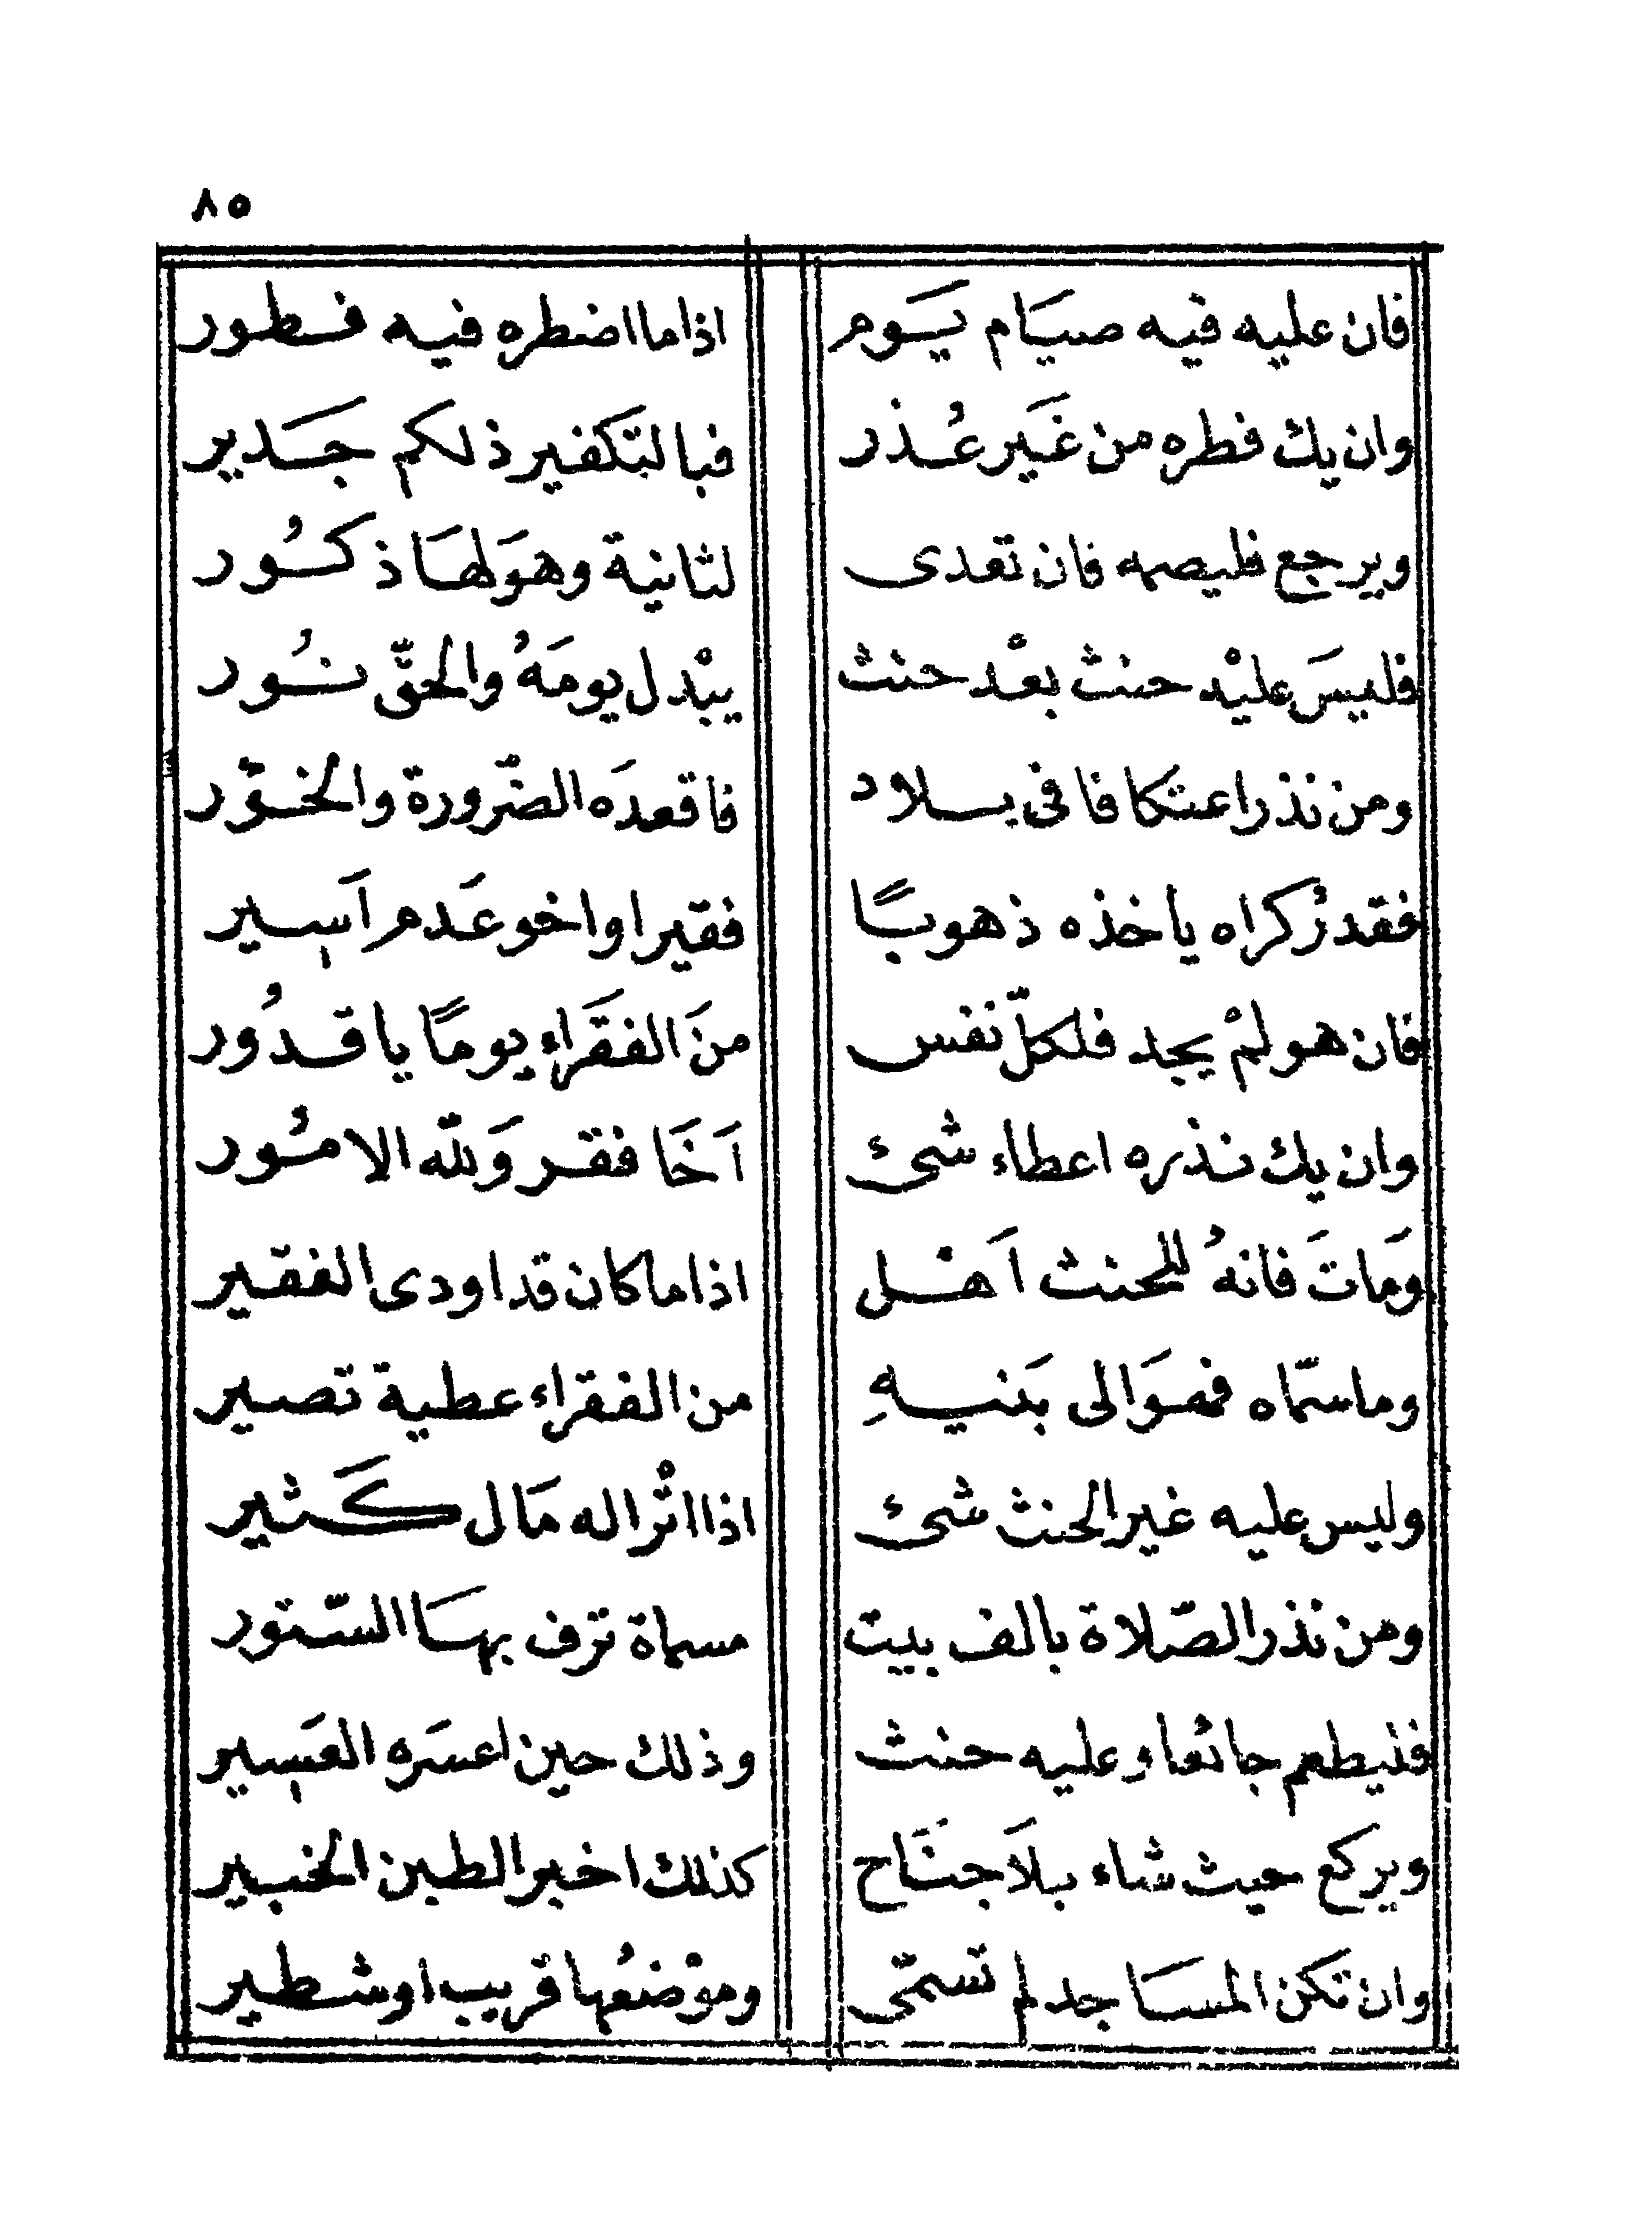 ٨٥
فان عليه فيه صيَام يَوم اذا ما اضطره فيه فطور
وان يك فطره من غَير عُذر فبالتكفير ذلكم جَدير
ويرجع فليصمه فان تعدى لثانية وهوَ لهَا ذكُور
فليسَ عليْه حنث بعْد حنث يبْدل يومَهُ والحقّ نُور
ومن نذر اعتكافا في بلاد فاقعدَه الضّرورة والختّور
فقد كراه ياخذه ذهوبًا فقيرا او اخو عَدم اَسير
فان هو لمْ يجد فلكلّ نفس منَ الفقَراء يومًا يا قدُور
وان يك نذره اعطاء شئ اَخَا فقر وَلله الامُور
وَماتَ فانهُ للحنث اَهْل اذا ما كان قد اودى الفقير
وما سمّاه فهوَ الى بَنيهِ من الفقراء عطية تصير
وليس عليه غير الحنث شئ اذا اثْراله مَال كَثير
ومن نذر الصّلاة بالف بيت مسماة ترف بهَا الستور
فليطعم جائعا وعليه حنث وذلك حين اعسَره العَسير
ويركع حيث شاء بلاَ جنَاح كذلك اخبر الطبن الخبير
وان تكن المسَاجد لم تسمّى وموْضعُها قريب او شطير